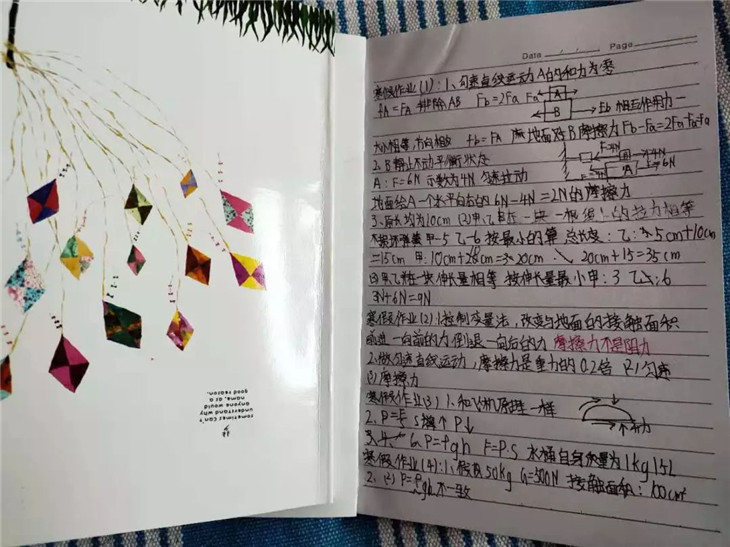 sometimes can't
understand why
anyone would
name, as a
good reason.
Date / / Page
寒假作业(1):1、匀速直线运动A的和力为零
fA=FA 排除AB Fb=2Fa Fa A
B Fb 相互作用力一
大小相等,方向相反 fb=FA 地面对B摩擦力Fb-Fa=2Fa-Fa=Fa
2、B静止不动平衡状态 F=4N 4N
A:F=6N 示数为4N 匀速拉动 A 6N
地面给A一个水平向右的6N-4N=2N的摩擦力
3、原长均为10cm (2)甲乙 在一起一根绳上的拉力相等
不损坏弹簧 甲-5 乙-6 按最小的算 总长度:乙:5cm+10cm
=15cm 甲:10cm+ =20cm 20cm+15=35cm
甲乙 在一块伸长量相等 按伸长量最小 甲:3 乙:6
3N+6N=9N
寒假作业(2)1、控制变量法,改变与地面的接触面积
前进一向前的力 倒退一向后的力 摩擦力不是阻力
2、做匀速直线运动,摩擦力是重力的0.2倍 (2)匀速
(3)摩擦力
寒假作业(3) 1、和飞机原理一样
2、P= S增个 P↓ 升力
6、P=ρgh F=P·S 水桶自身质量为1kg
寒假作业(4):1、假设50kg G=500N 接触面积:100cm²
2、(2)P=ρgh不一致